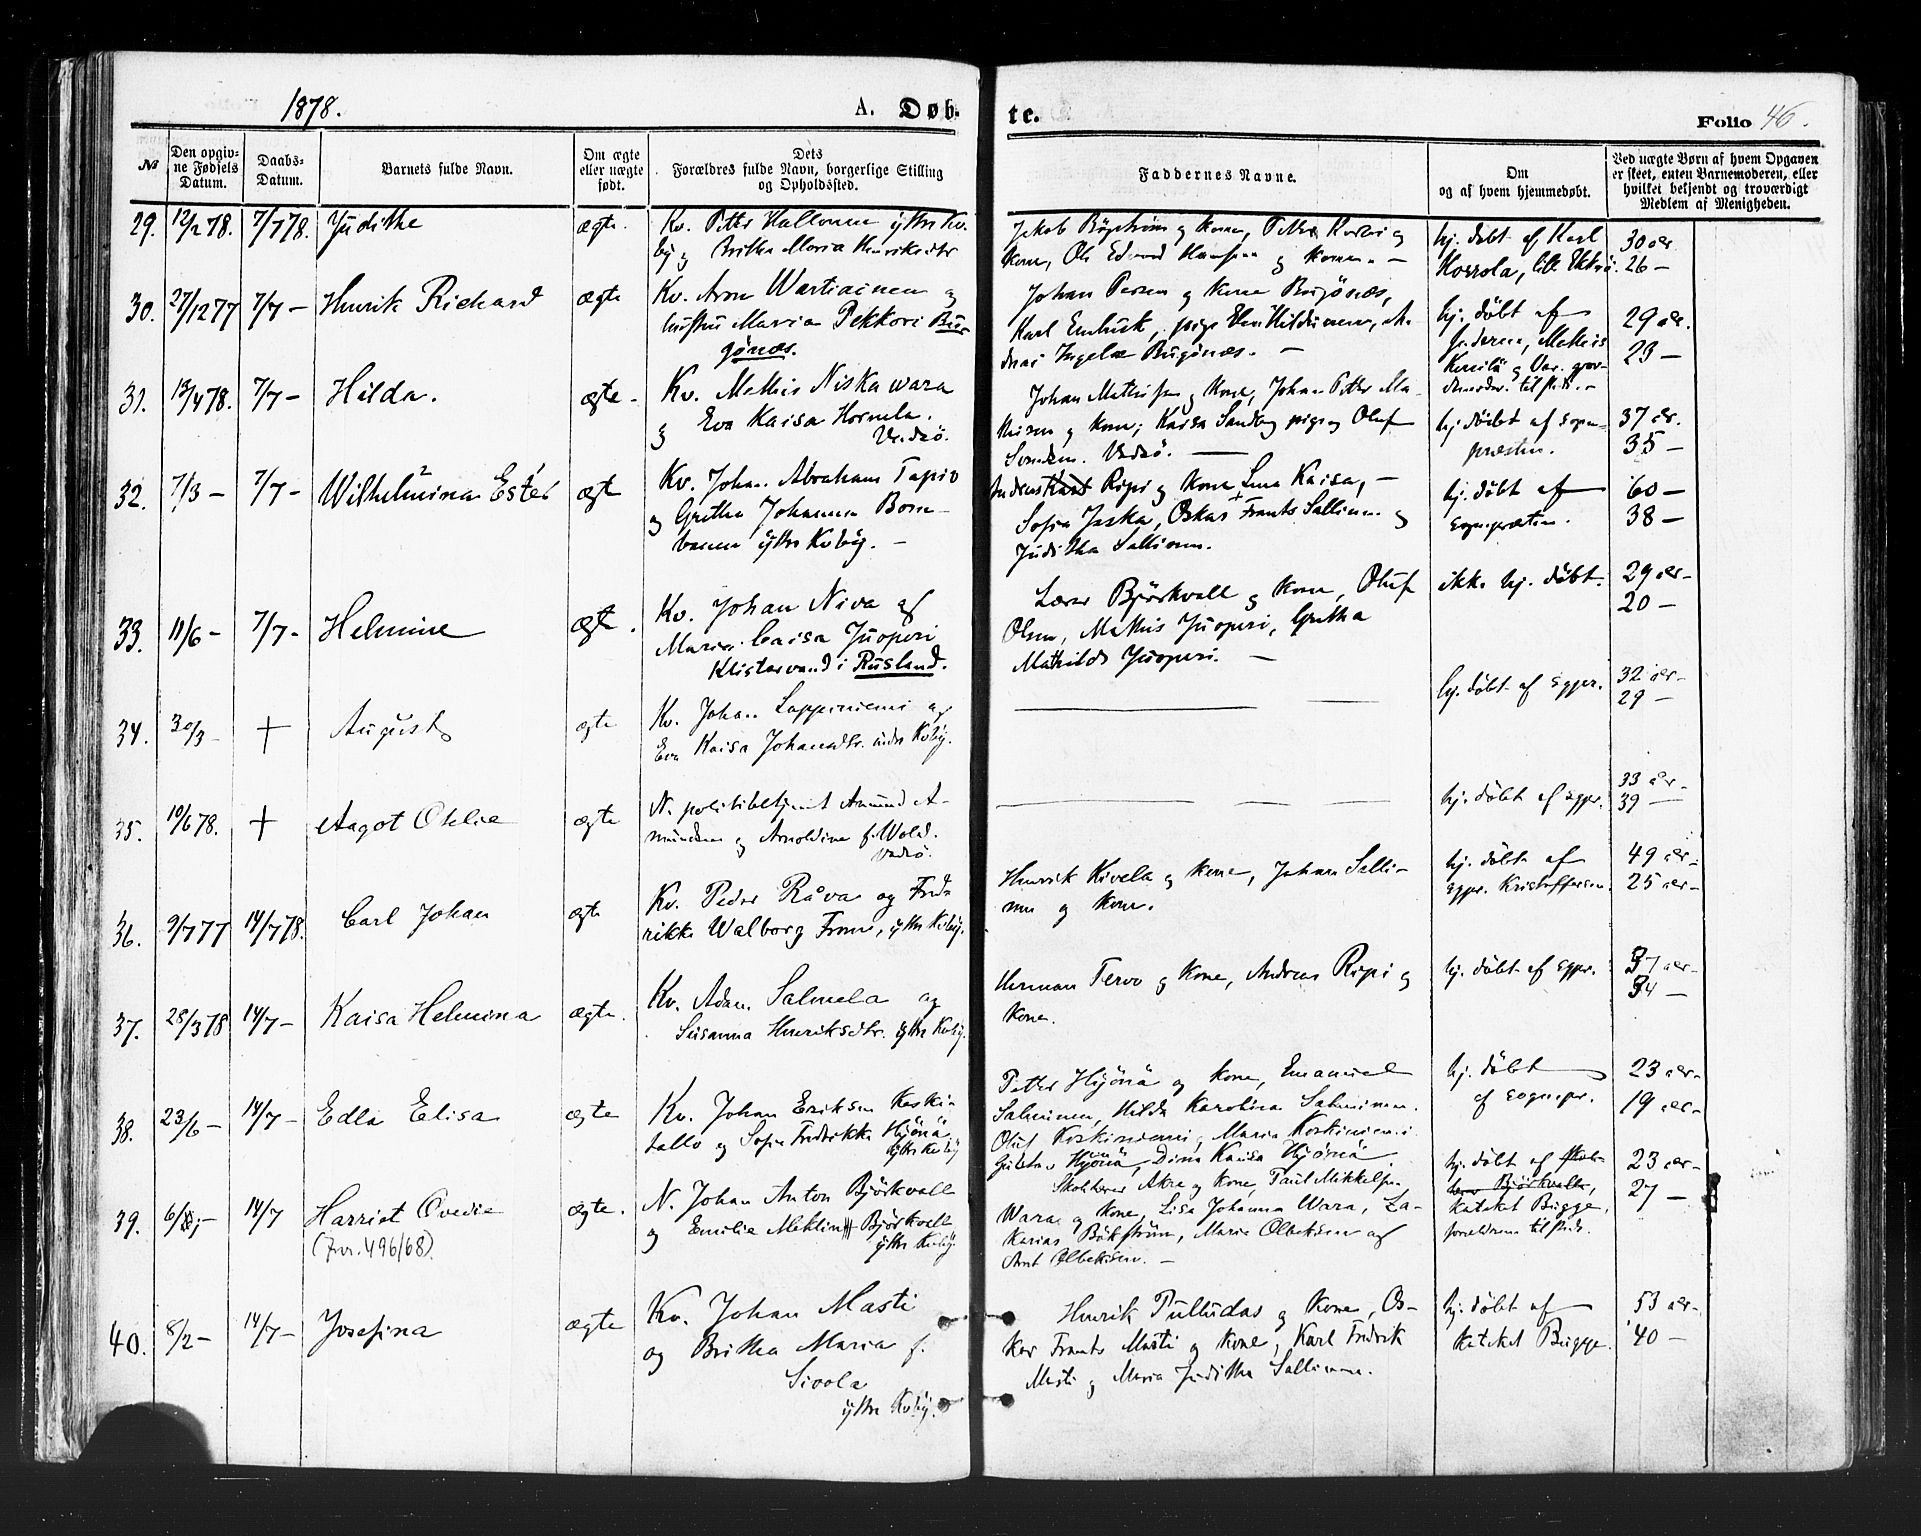 1878.
A. Døb-
te.
Folio 46.
№
Den opgiv-
ne Fødsels
Datum.
Daabs-
Datum.
Barnets fulde Navn.
Om ægte
eller uægte
født.
Dets
Forældres fulde Navn, borgerlige Stilling
og Opholdssted.
Faddernes Navne.
Om
og af hvem hjemmedøbt.
Ved uægte Børn af hvem Opgaven
er skeet, enten Barnemoderen, eller
hvilket bekjendt og troværdigt
Medlem af Menigheden.
29. 12/2 78. 7/7 78. Judithe ægte.
by og Britha Maria Henriksdtr
kone, Ole Edvard Hansen og konen. —
hj. døbt af Karl
30 aar.
26 —
30. 27/12 77 7/7 — Henrik Richard ægte
Kv. Aron Wartiainen og
hustru Maria Pekkori Bug
gönæs.
Johan Persen og kone Bugönæs,
hj. döbt af
29 aar.
23 —
31. 13/4 78. 7/7 — Hilda. ægte.
Kv. Mathis Niskawara
og Eva Kaisa Hornula.
Vadsö.
hj. döbt af sogne-
præsten.
37 aar.
35 —
32. 7/3 — 7/7 — Wilhelmina Ester ægte
Kv. Johan Abraham Tapio
og Gretha Johanna Born-
ytre Kvby. —
Andreas Ripi og kone Lena Kaisa, —
Sofia Jaska, Oskar Frants Sallinen og
Juditha Sallinen.
hj. döbt af
60 —
38 —
33. 11/6 — 7/7 — Helmine ægte.
Kv. Johan Niva og
Maria Caisa Juoperi
Klistervand i Rusland.
Lærer Björkvall og kone, Oluf
Olsen, Mathis Juoperi, Gretha
Mathilde Juoperi. —
ikke hj. döbt.
29 aar —
20 —
34. 30/3 — † August ægte
Kv. Johan Lappiniemi og
Eva Kaisa Johansdtr. indre Kvby.
hj. döbt af sgpr.
32 aar —
29 —
35. 10/6 78. † Aagot Otelie ægte
N. politibetjent Amund A-
mundsen og Arnoldine f. Wold.
Vadsö.
hj. döbt af sgpr.
33 aar —
39 —
36. 9/7 77 14/7 78. Carl Johan ægte
Kv. Peder Råva og Fred-
rikke Walborg From, ytre Kvby.
Henrik Kivela og kone, Johan Salli-
nen og kone.
hj. döbt af
sgpr. Kristoffersen.
49 aar —
25 aar —
37. 28/3 78 14/7 — Kaisa Helmina ægte.
Kv. Adam Salmela og
Susanna Henriksdtr. ytre Kvby.
Herman Tervo og kone, Andreas Ripi og
kone.
hj. döbt af sgpr.
37 aar —
34 —
38. 23/6 — 14/7 — Edla Elisa ægte
Kv. Johan Eriksen Koski-
tallo og Sofie Fredrikke Hyönä.
ytre Kvby
Petter Hyönä og kone, Emanuel
Salminen, Hilda Karolina Salminen.
Oluf Koskiniemi, Maria Koskiniemi
Gustav Hyönä, Dina Kaisa Hyönä
hj. döbt
af sognepr.
23 aar —
19 aar —
39. 14/7 Harriet Ovedie ægte.
(Jvr. 496/68)
N. Johan Anton Björkvall
og Emilie Meklin Björkvall
ytre Kvby.
Skolelærer Akre og kone, Paul Mikkelsen
Wara og kone, Lisa Johanna Wara, Za-
karias Bökström, Maria Olbeksen og
Arnt Olbeksen. —
hj. döbt af skole-
lærer Björkvall,
kateket Bugge,
forældrene tilstede.
23 aar —
27 —
40. 8/2 — 14/7 — Josefina ægte
Kv. Johan Masti
og Britha Maria f.
Sivola
ytre Kvby.
Henrik Pulludas og kone, Os-
kar Frants Masti og kone, Karl Fredrik
Masti og Maria Juditha Sallinen.
hj. döbt af
kateket Bugge.
53 aar —
40 —